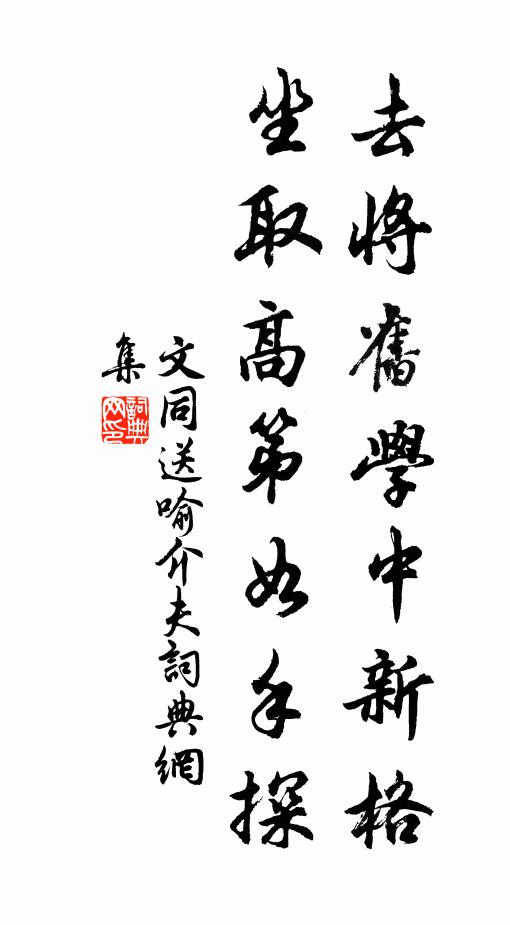 去將舊學中新格
坐取高第如手探
文同送喻介夫詞典網
集
詞典
网印